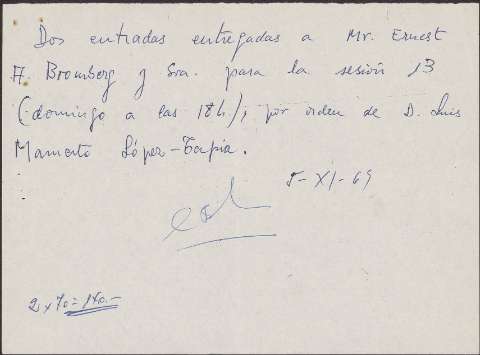 Dos entradas entregadas a Mr. Ernest
A. Bromberg y Sra. para la sesión 13
(domingo a las 18h.), por orden de D. Luis
Mamerto López-Tapia.
5-XI-69
2 x 70 = 140.-